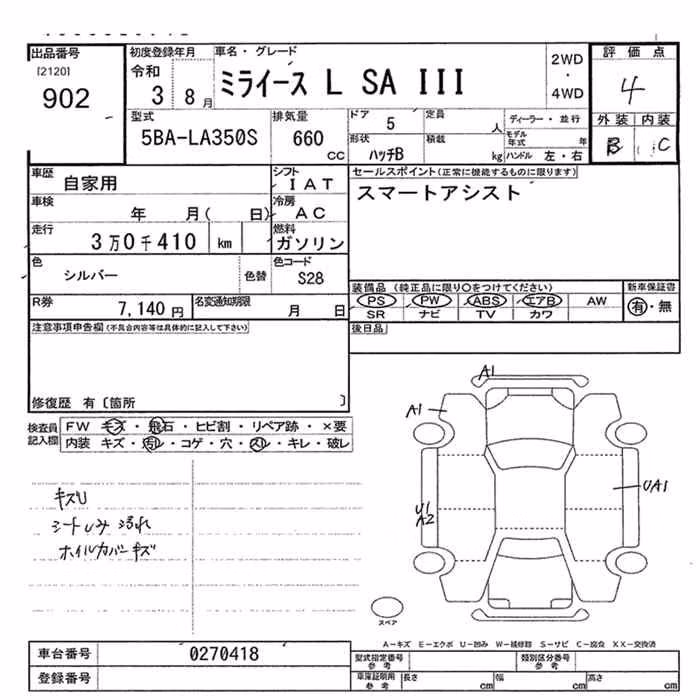 出品番号
[2120]
902
初度登録年月
令和
3 8月
車名・グレード
ミライース L SA III
2WD
・
4WD
評価点
4
外装 内装
B C
型式
5BA-LA350S
排気量
660
CC
ドア 5
定員
人
ディーラー・並行
形状
ハッチB
積載
kg
モデル年式 年
ハンドル 左・右
車歴
自家用
シフト
IAT
車検
年 月( 日)
冷房
AC
走行
3万0千410 km
燃料
ガソリン
色
シルバー
色替
色コード
S28
R券
7,140 円
名変通知期限
月 日
セールスポイント(正常に機能するものに限ります)
スマートアシスト
装備品 (純正品に限り○をつけてください)
新車保証書
PS PW ABS エアB AW
SR ナビ TV カワ
有・無
後日品
注意事項申告欄(不具合内容等は具体的に記入して下さい)
修復歴 有〔箇所 〕
検査員記入欄
FW キズ・飛石・ヒビ割・リペア跡・×要
内装 キズ・ ・コゲ・穴・ ・キレ・破レ
キズU
シートしみ
ホイルカバーキズ
A1
A1
U1
A2
UA1
スペア
A-キズ E-エクボ U-凹み W-補修跡 S-サビ C-腐食 XX-交換済
車台番号
0270418
登録番号
型式指定番号
参考
類別区分番号
参考
車庫証明用
参考
長さ cm
幅 cm
高さ cm